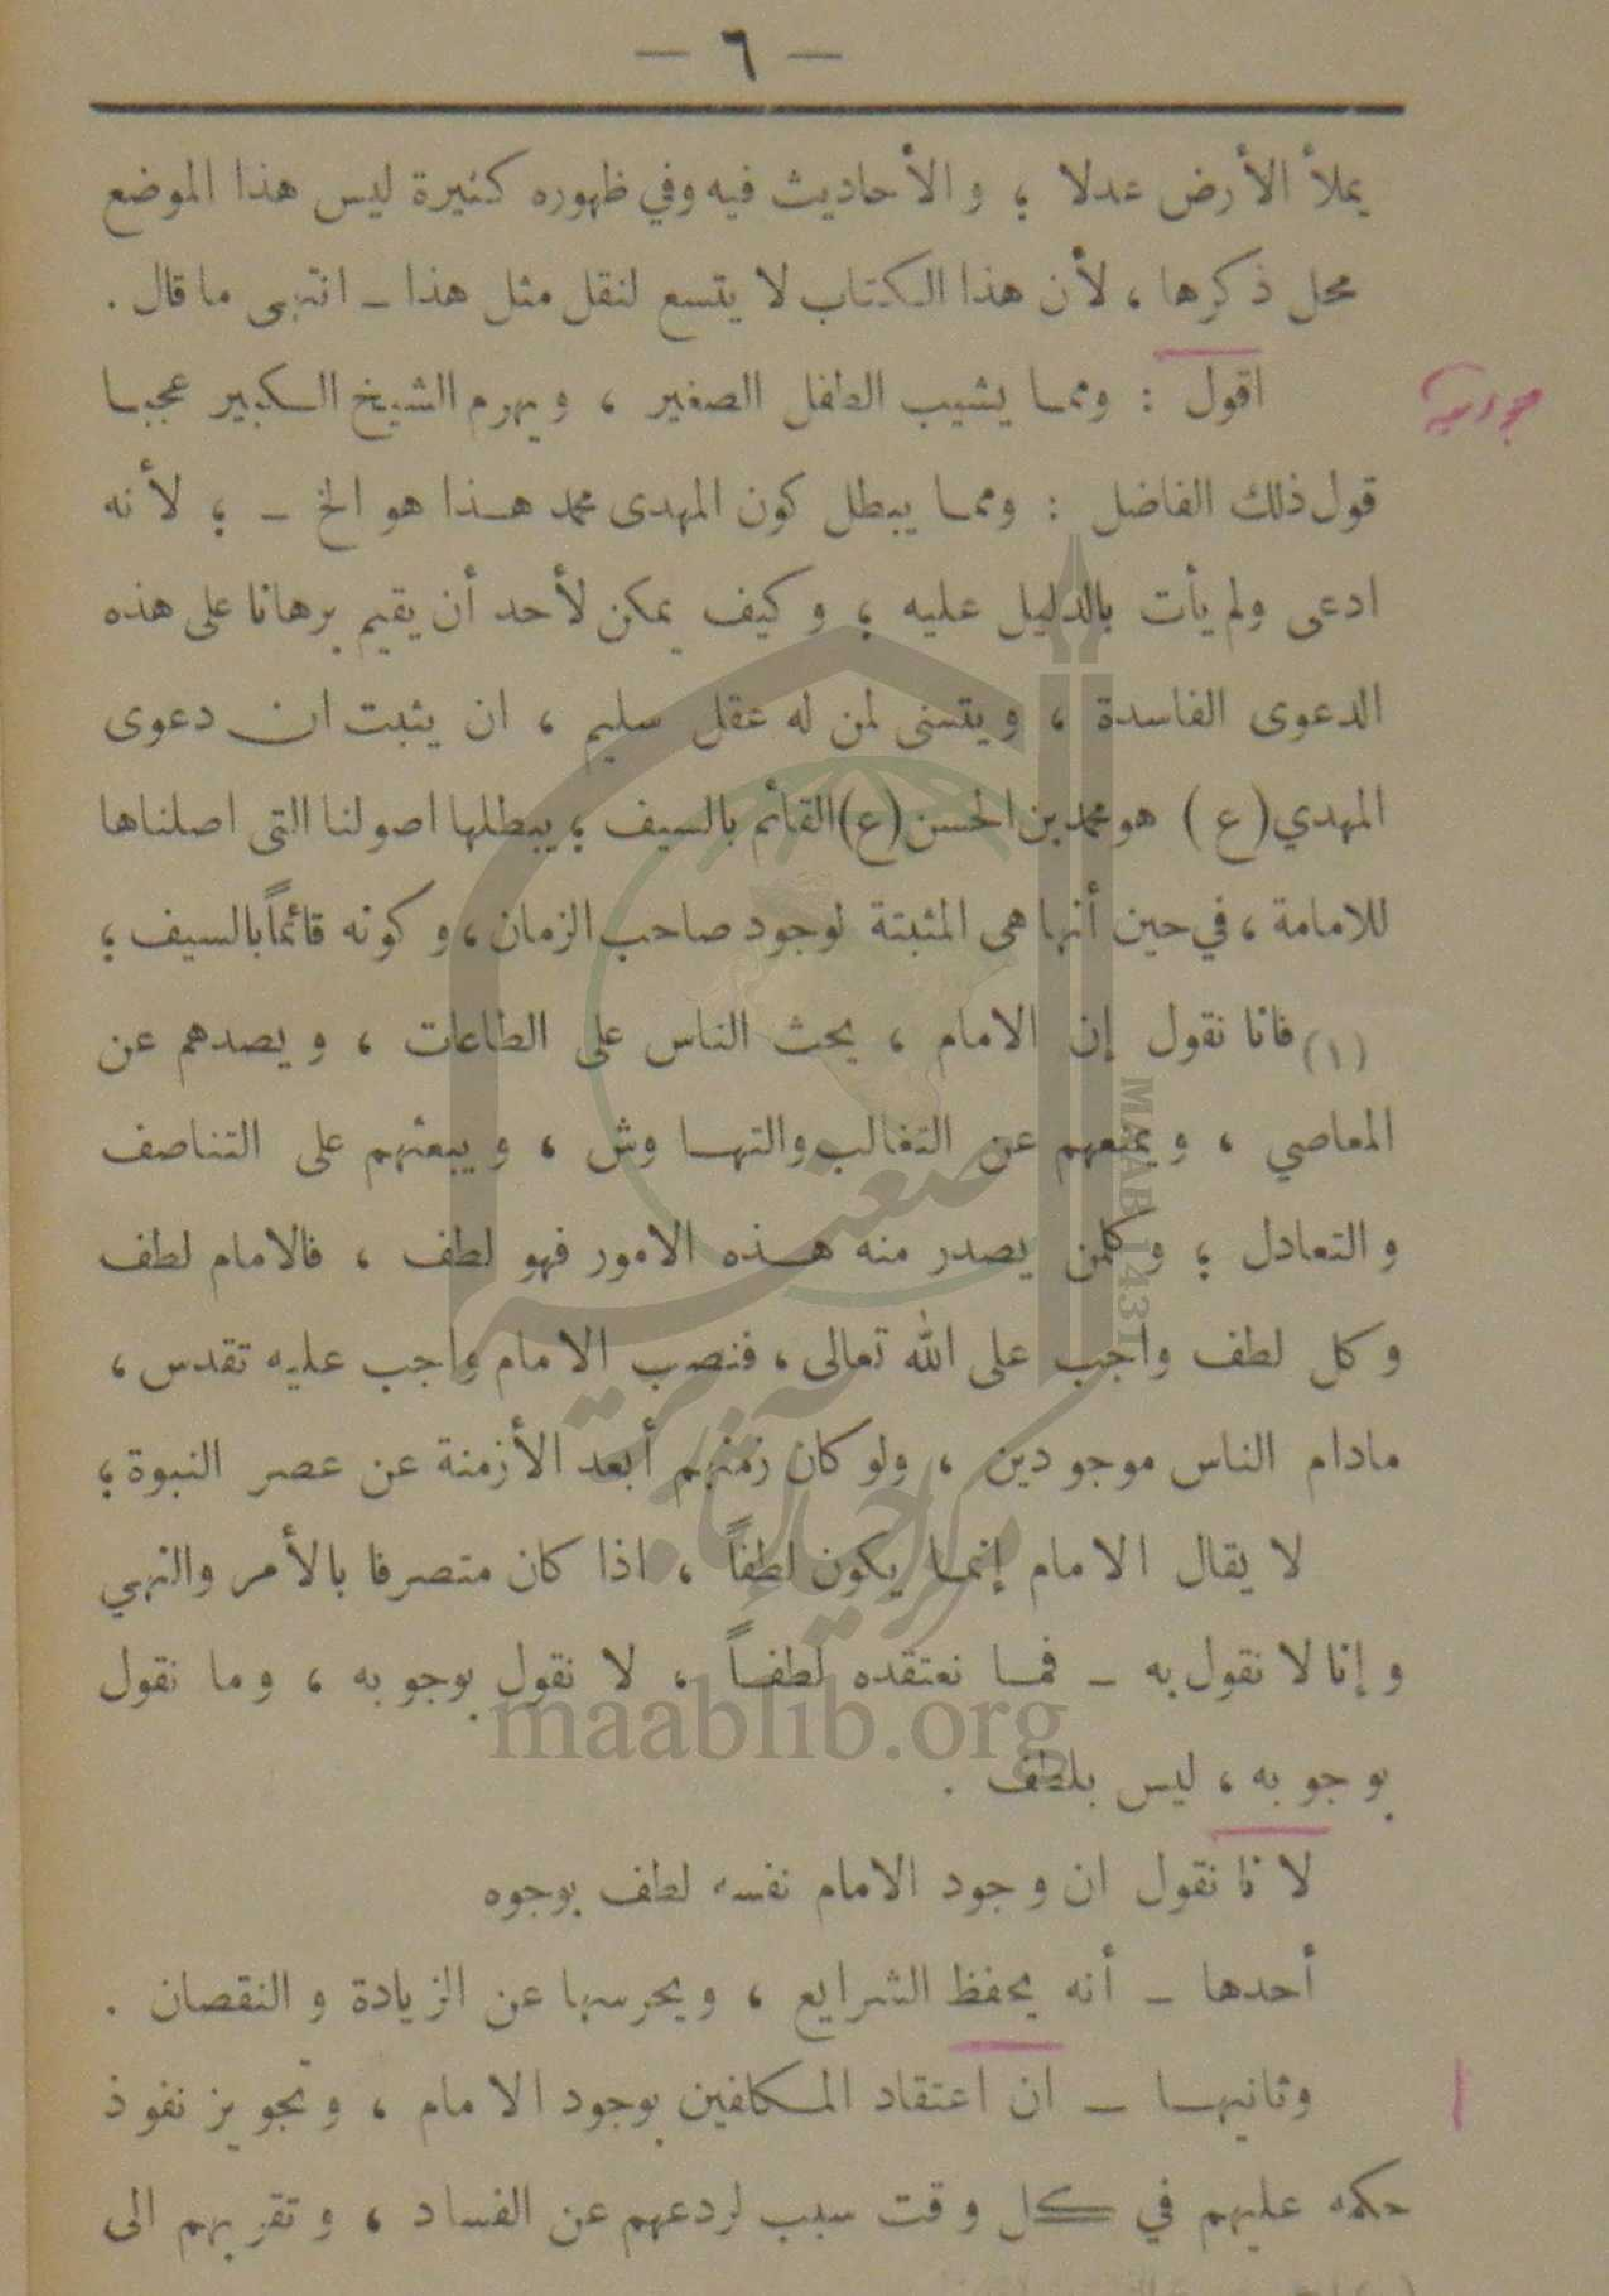 — ٦ —
يملأ الأرض عدلا ؛ والأحاديث فيه وفي ظهوره كثيرة ليس هذا الموضع
محل ذكرها ، لأن هذا الكتاب لا يتسع لنقل مثل هذا ـ انتهى ما قال .
اقول : ومما يشيب الطفل الصغير ، ويهرم الشيخ الكبير عجبا
قول ذلك الفاضل : ومما يبطل كون المهدى محمد هذا هو الخ ـ ؛ لأنه
ادعى ولم يأت بالدليل عليه ؛ وكيف يمكن لأحد أن يقيم برهانا على هذه
الدعوى الفاسدة ، ويتسنى لمن له عقل سليم ، ان يثبت ان دعوى
المهدي (ع) هو محمد بن الحسن (ع) القائم بالسيف ؛ يبطلها اصولنا التى اصلناها
للامامة ، في حين أنها هى المثبتة لوجود صاحب الزمان ، وكونه قائماً بالسيف ؛
(١) فانا نقول إن الامام ، يحث الناس على الطاعات ، ويصدهم عن
المعاصي ، ويمنعهم عن التغالب والتهاوش ، ويبعثهم على التناصف
والتعادل ؛ وكلمن يصدر منه هذه الامور فهو لطف ، فالامام لطف
وكل لطف واجب على الله تعالى ، فنصب الامام واجب عليه تقدس ،
مادام الناس موجودين ، ولو كان زمنهم أبعد الأزمنة عن عصر النبوة ؛
لا يقال الامام إنما يكون لطفاً ، اذا كان متصرفا بالأمر والنهي
وإنا لا نقول به ـ فما نعتقده لطفاً ، لا نقول بوجوبه ، وما نقول
بوجوبه ، ليس بلطف .
لانا نقول ان وجود الامام نفسه لطف بوجوه
أحدها ـ أنه يحفظ الشرايع ، ويحرسها عن الزيادة والنقصان .
وثانيها ـ ان اعتقاد المكلفين بوجود الامام ، وتجويز نفوذ
حكمه عليهم في كل وقت سبب لردعهم عن الفساد ، وتقربهم الى
MAAB 1431
maablib.org